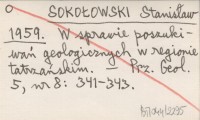 SOKOŁOWSKI Stanisław
1959. W sprawie poszuki-
wań geologicznych w regionie
tatrzańskim. — Prz. Geol.
5, nr 8: 341-343.